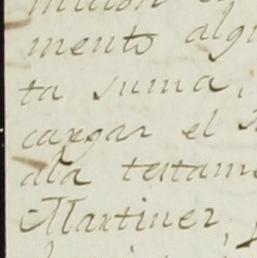 mento
ta suma,
cargar el
ala testam
Martinez,